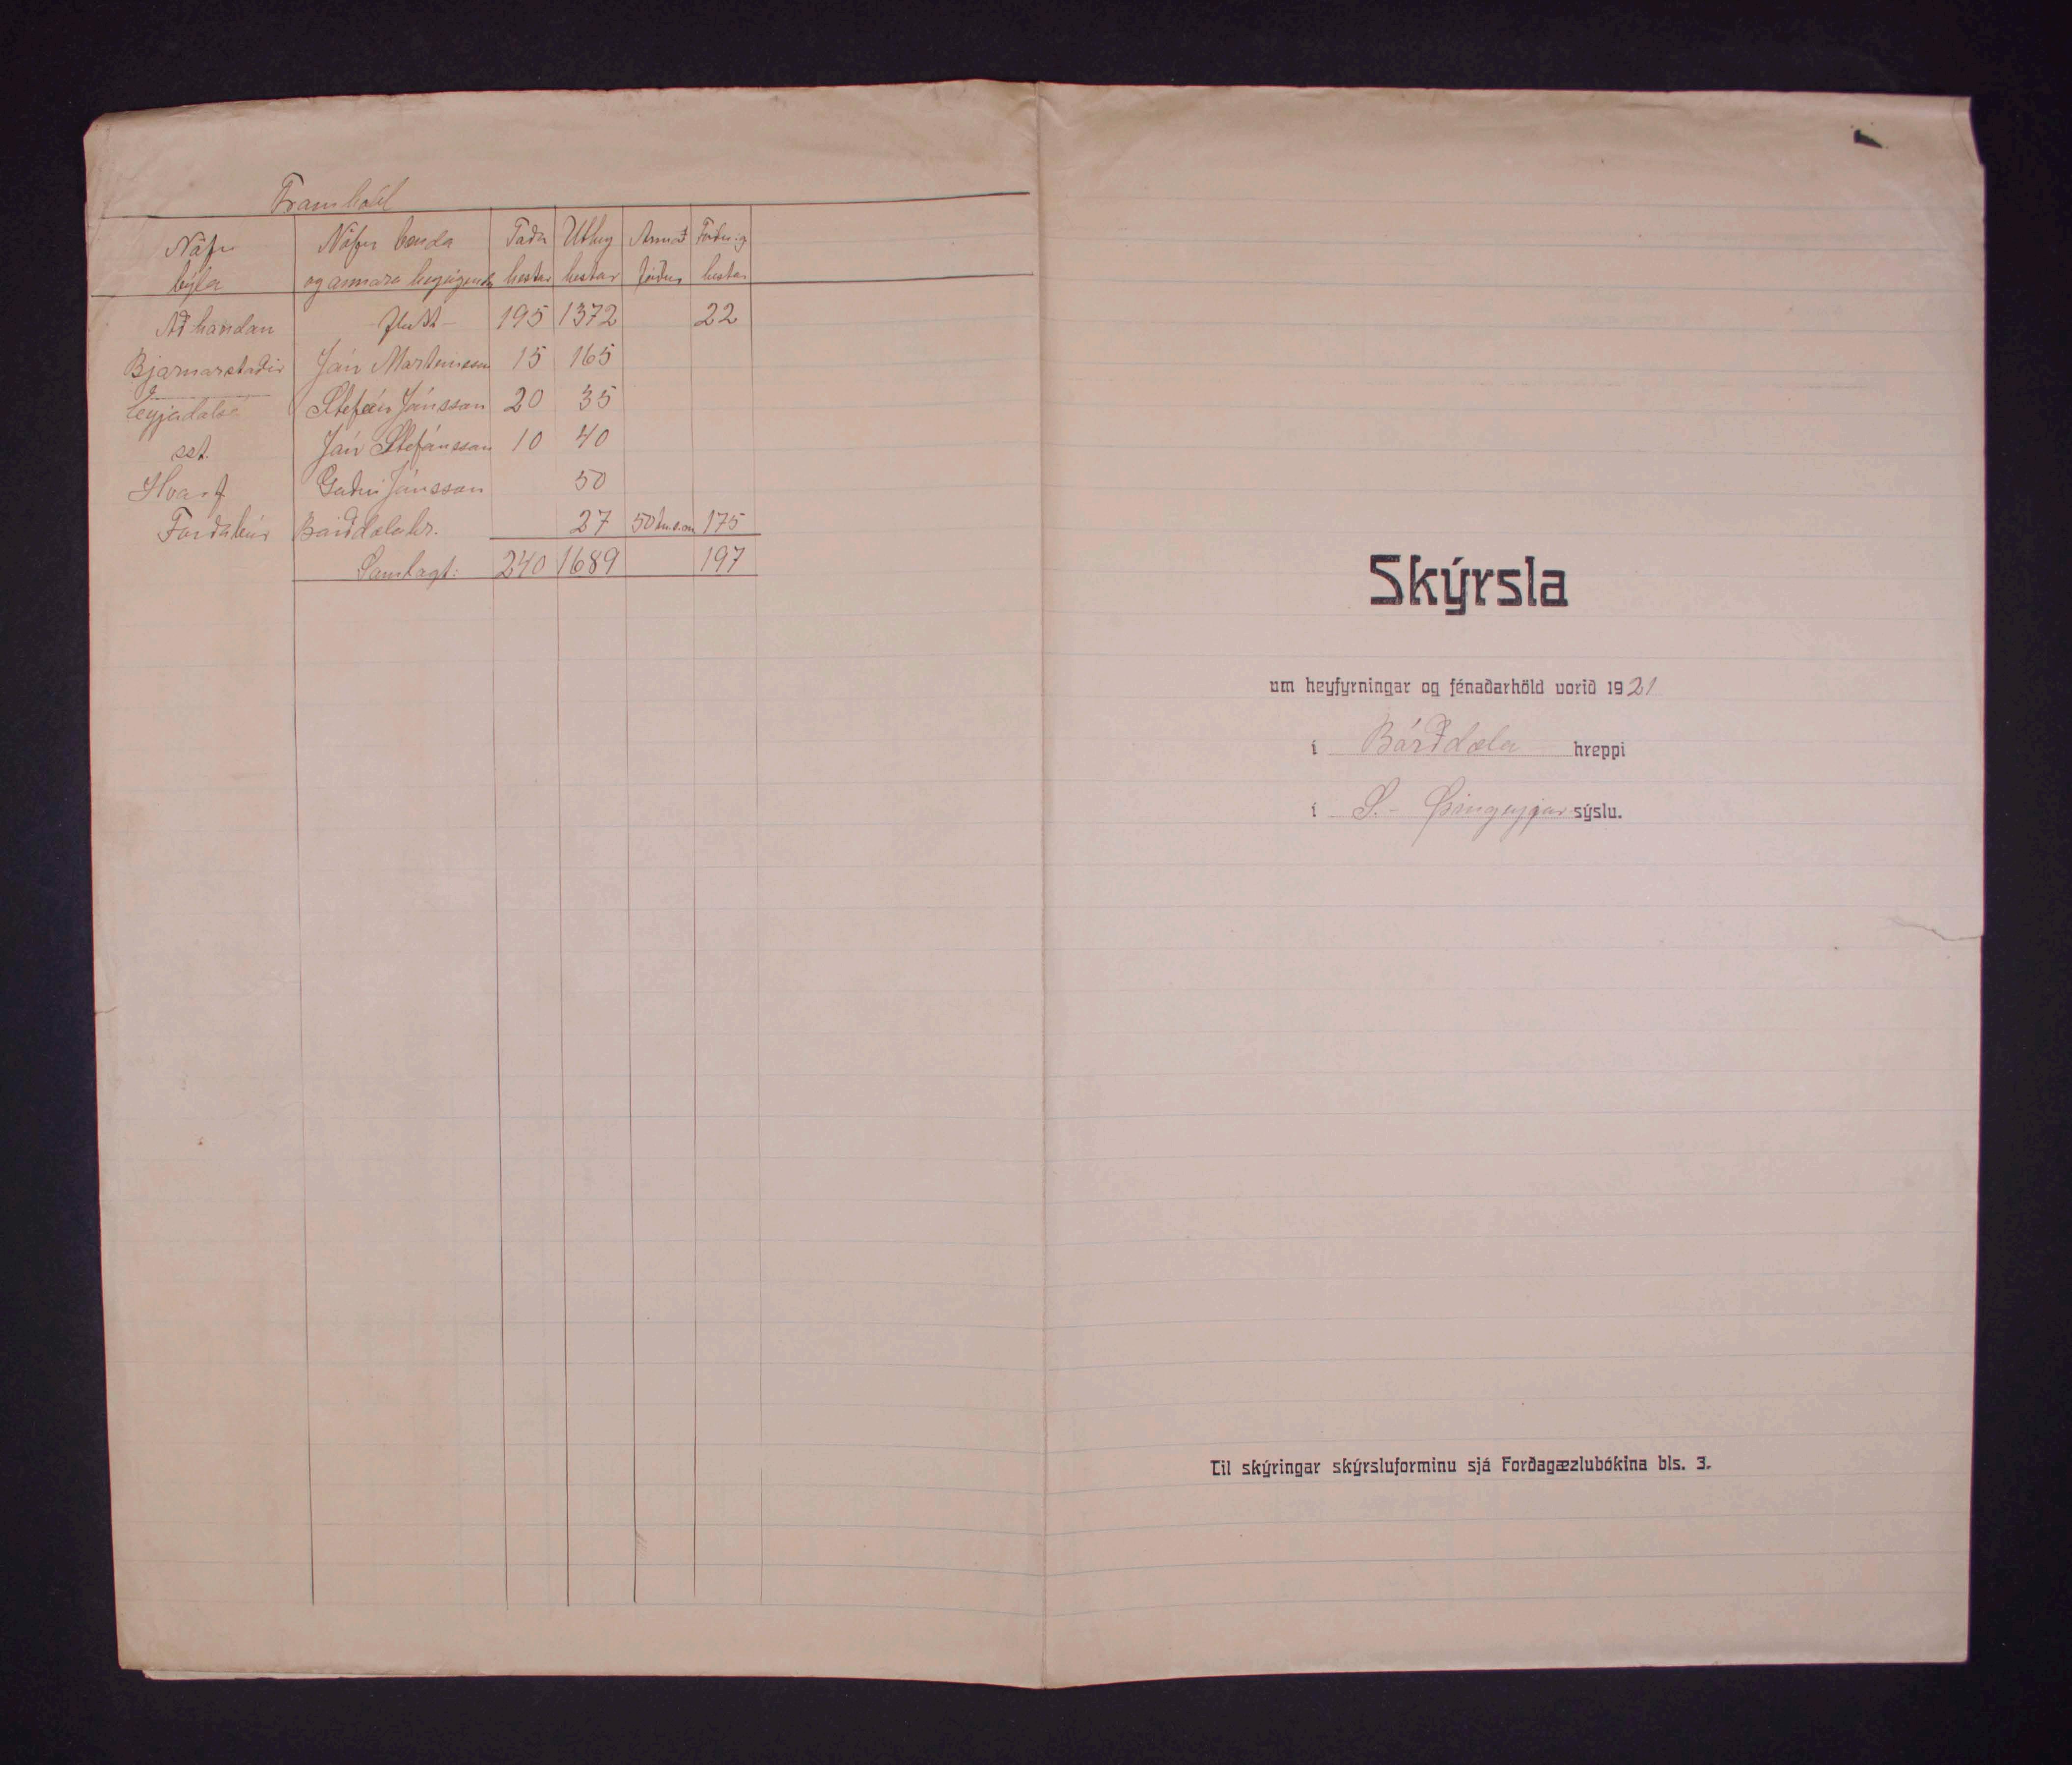 Framhald
Nöfn býla | Nöfn bænda og annara heyeigenda | Taða hestar | Úthey hestar | Annað fóður | Fóðu.g hestar
Að handan | flutt | 195 | 1372 | | 22
Bjarnarstaðir | Jón Marteinsson | 15 | 165
Eyjadalsá | Stefán Jónsson | 20 | 35
sst. | Jón Stefánsson | 10 | 40
Hvarf | Guðni Jónsson | | 50
Forðabúr | Bárðdælahr. | | 27 | 50 | 175
Samtagt: | 240 | 1689 | | 197
Skýrsla
um heyfyrningar og fénaðarhöld vorið 1921
í Bárðdæla hreppi
í S.- Þingeyjar sýslu.
Til skýringar skýrsluforminu sjá Forðagæzlubókina bls. 3.